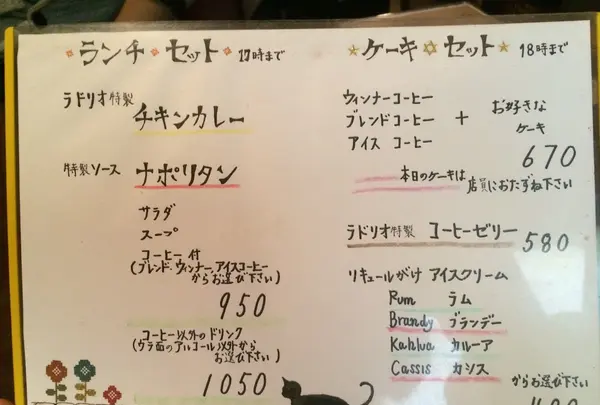 ランチ セット 17時まで
ラドリオ特製
チキンカレー
特製ソース ナポリタン
サラダ
スープ
コーヒー付
(ブレンド、ウィンナー、アイスコーヒー
からお選び下さい)
950
コーヒー以外のドリンク
(ウラ面のアルコール以外から
お選び下さい)
1050
ケーキ セット 18時まで
ウィンナーコーヒー
ブレンドコーヒー + お好きな
ケーキ
アイス コーヒー
670
本日のケーキは
店員におたずね下さい
ラドリオ特製 コーヒーゼリー 580
リキュールがけ アイスクリーム
Rum ラム
Brandy ブランデー
Kahlua カルーア
Cassis カシス
からお選び下さい